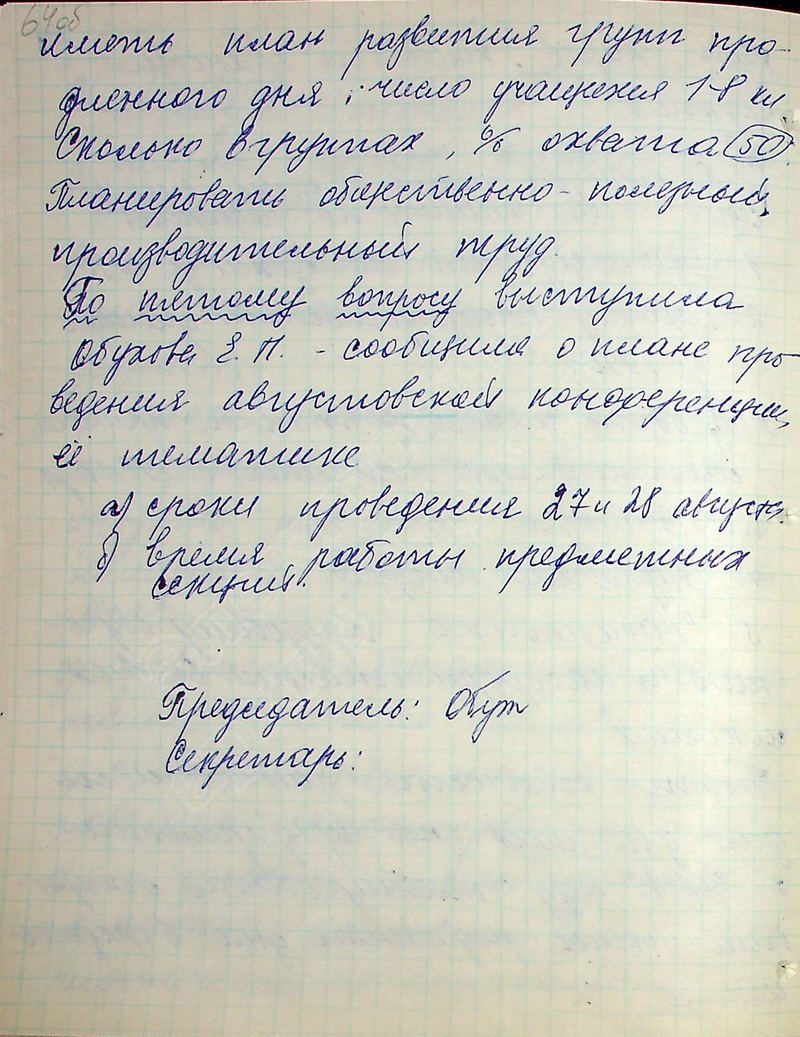 64об
иметь план развития групп про-
дленного дня; число учащихся 1-8 кл
Сколько в группах, % охвата 50
Планировать общественно-полезный,
производительный труд.
По пятому вопросу выступила
Обухова Е. П. - сообщила о плане про-
ведения августовской конференции,
её тематике
а) сроки проведения 27 и 28 августа.
б) время работы предметных
секций.
Председатель: Обух
Секретарь: